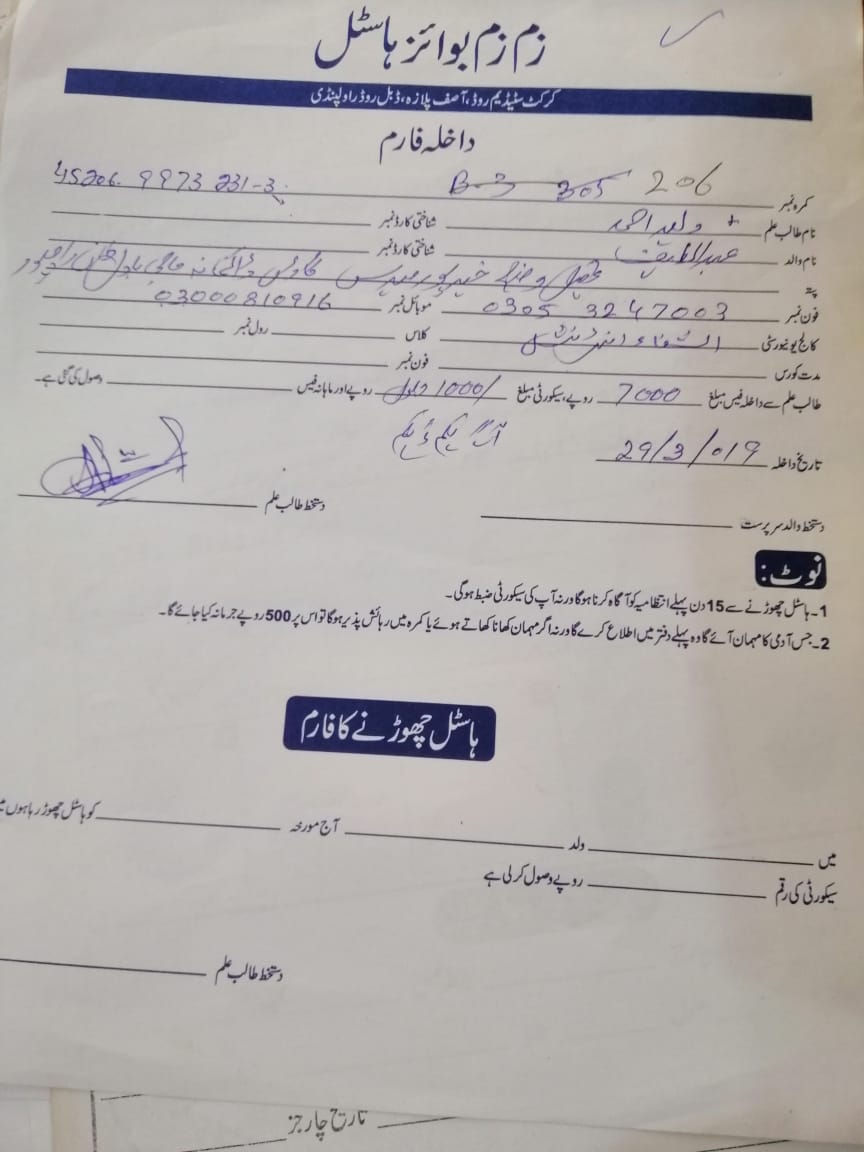 زم زم بوائز ہاسٹل
کرکٹ سٹیڈیم روڈ، آصف پلازہ، ڈبل روڈ راولپنڈی
داخلہ فارم
کمرہ نمبر B-3 305 206 45206. 9973 231-3
نام طالب علم ولید احمد شناختی کارڈ نمبر
نام والد عبدالطیف شناختی کارڈ نمبر
پتہ تحصیل و ضلع خیرپور میرس ڈاکخانہ حاجی
فون نمبر 0305 3247003 موبائل نمبر 03000810916
کالج یونیورسٹی الشفاء کلاس رول نمبر
مدت کورس فون نمبر
طالب علم سے داخلہ فیس مبلغ 7000 روپے، سیکورٹی مبلغ 1000/ روپے اور ماہانہ فیس وصول کی گئی ہے۔
تاریخ داخلہ 29/3/019
دستخط طالب علم
دستخط والد سرپرست
نوٹ:
1۔ ہاسٹل چھوڑنے سے 15 دن پہلے انتظامیہ کو آگاہ کرنا ہوگا ورنہ آپ کی سیکورٹی ضبط ہوگی۔
2۔ جس آدمی کا مہمان آئے گا وہ پہلے دفتر میں اطلاع کرے گا ورنہ اگر مہمان کھانا کھاتے ہوئے یا کمرہ میں رہائش پذیر ہوگا تو اس پر 500 روپے جرمانہ کیا جائے گا۔
ہاسٹل چھوڑنے کا فارم
میں ولد آج مورخہ کو ہاسٹل چھوڑ رہا ہوں
سیکورٹی کی رقم روپے وصول کرلی ہے
دستخط طالب علم
تاریخ چارجز